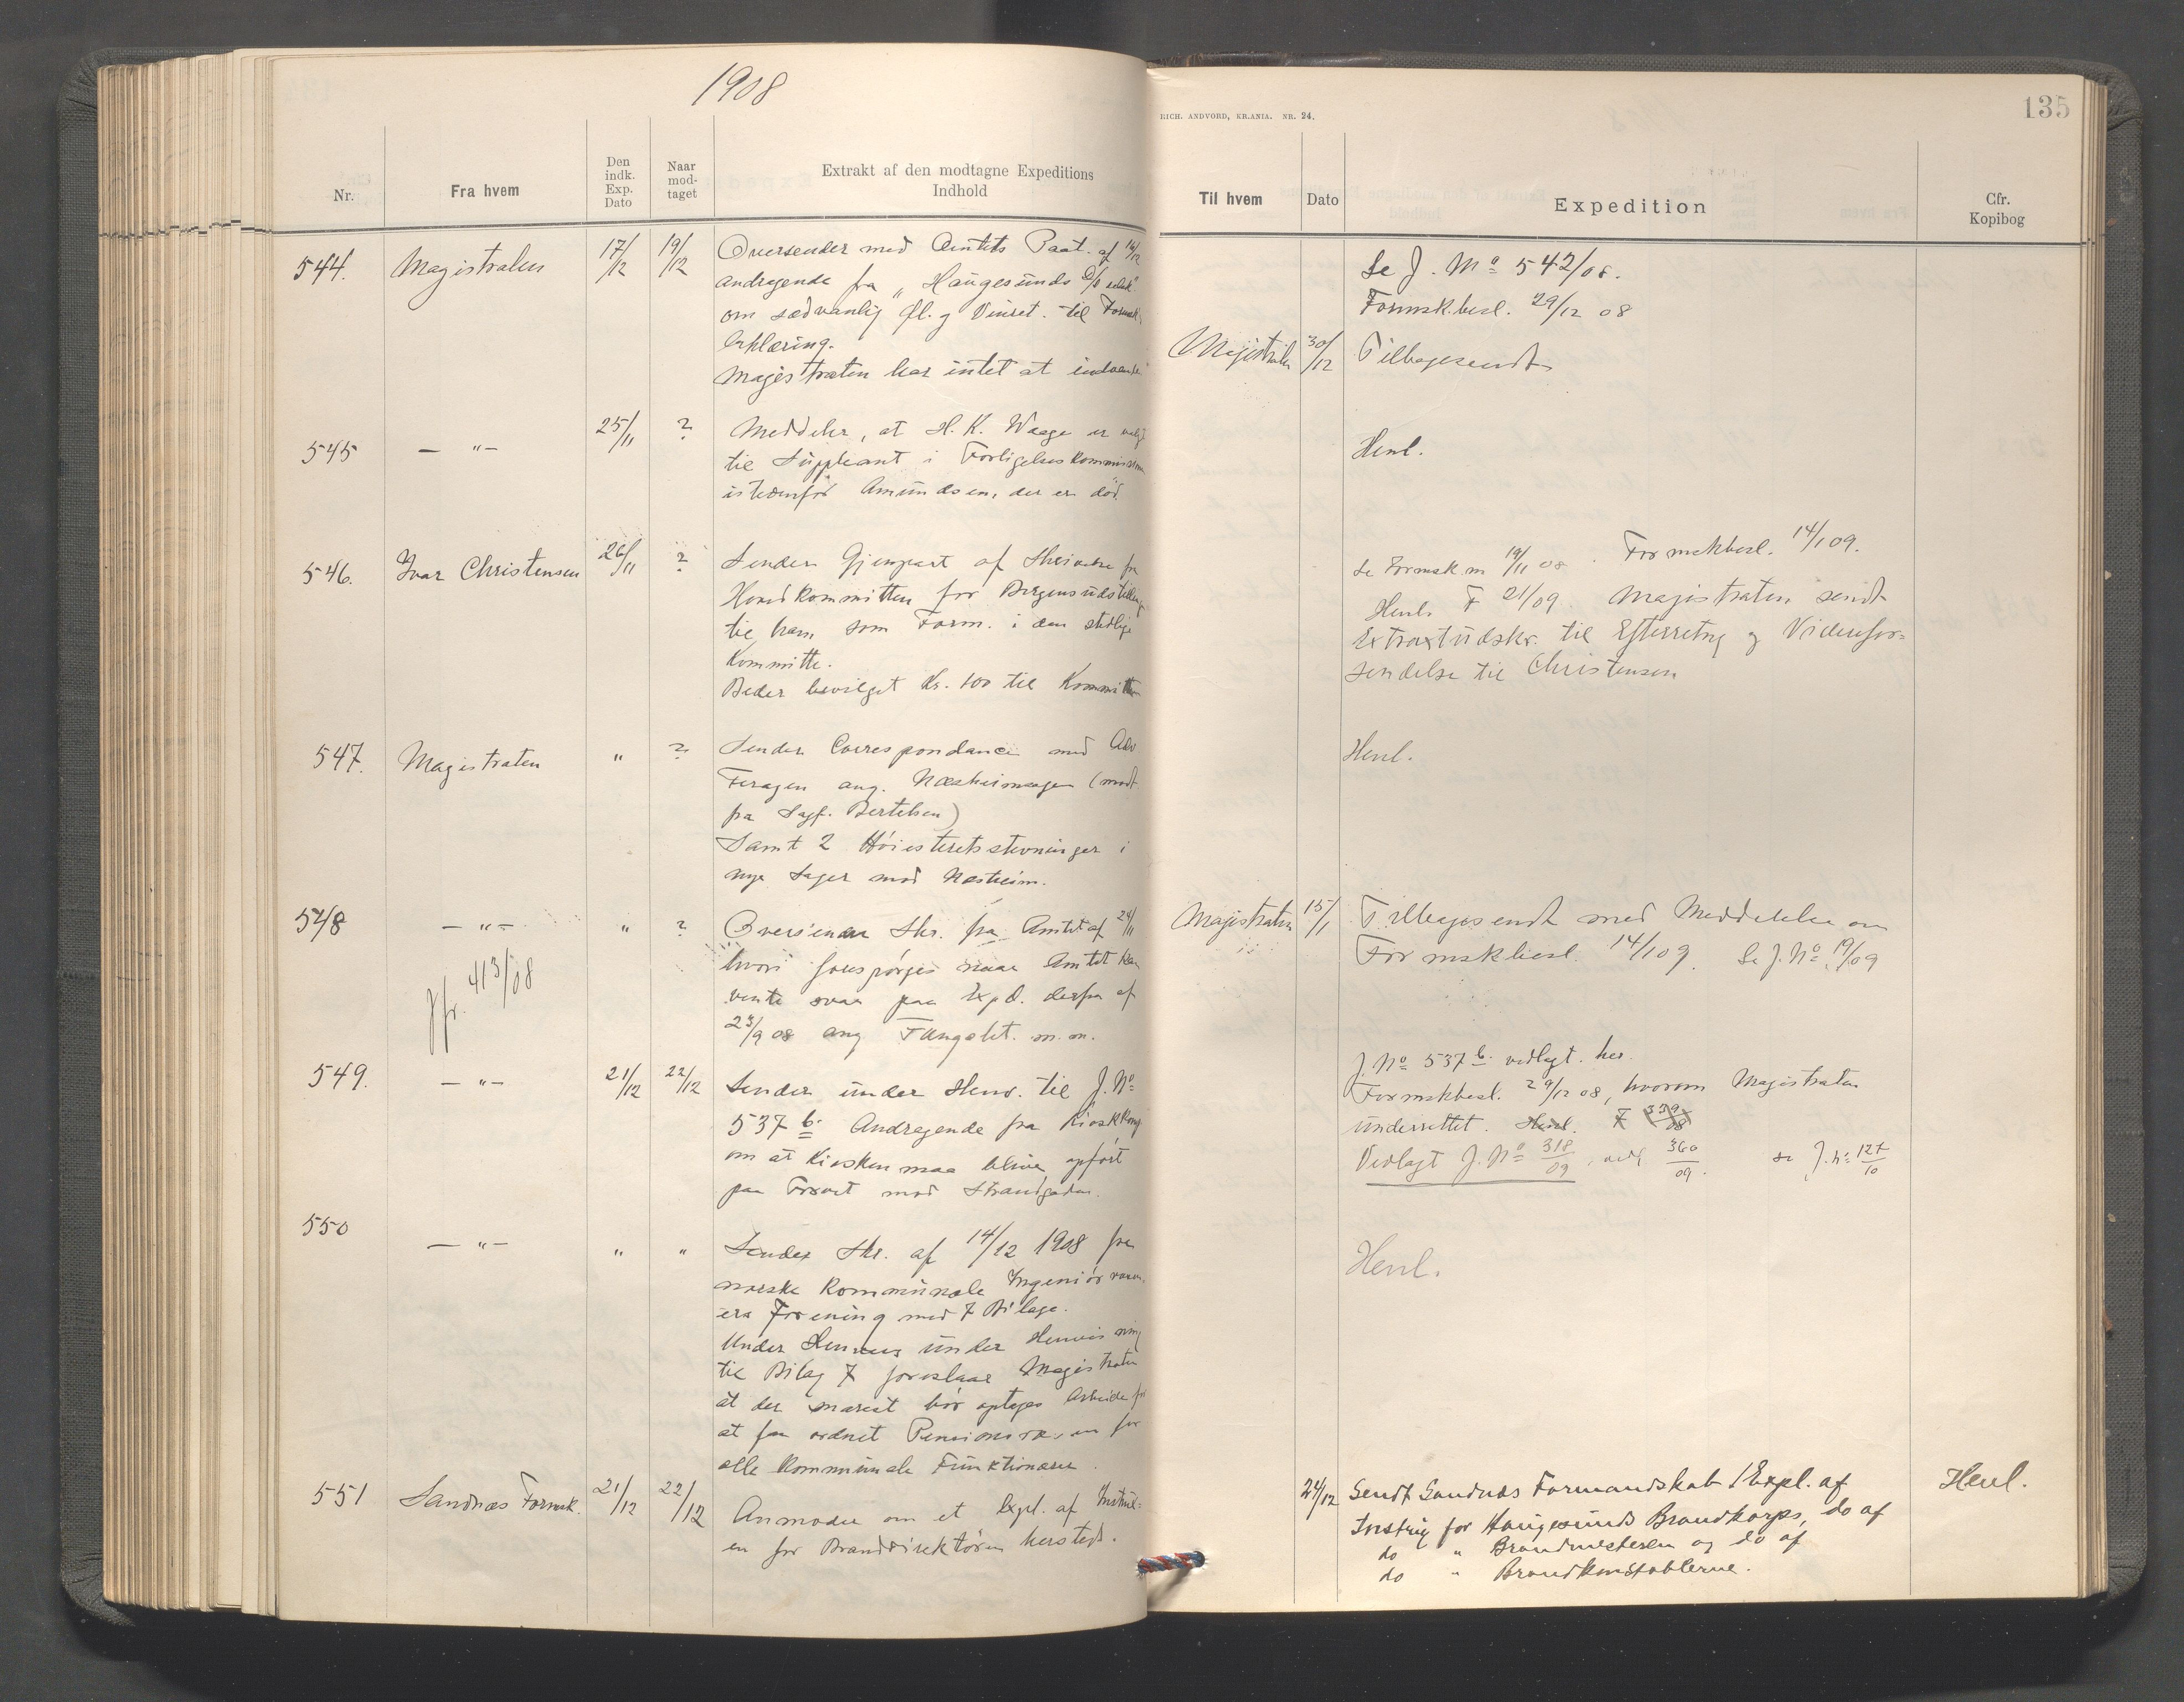 1908
Nr.
Fra hvem
Den indk. Exp. Dato
Naar mod-taget
Extrakt af den modtagne Expeditions Indhold
544.
Magistraten
17/12
19/12
Oversender med Amtets Paat. af
andragende fra „Haugesunds
om sædvanlig Øl. g Vinret. til Formsk.
Erklæring.
Magistraten har intet at indvende
545
— „ —
25/11
?
Meddeler, at H. K. Waage er valgt
til Suppleant i Forligelseskommissionen
istedenfor Amundsen, der er død.
546.
Ivar Christensen
26/11
?
Sender Gjenpart af Skrivelse fra
Hovedkommitteen for Bergensudstilling
til ham som Form. i den stedlige
Kommitte.
Beder bevilget Kr. 100 til Kommitteen
547.
Magistraten
„
?
Sender Correspondance med Adv
Feragen ang. Næsheimsagen (modt
fra Sagf. Bertelsen)
Samt 2 Høiesteretsstevninger i
nye Sager mod Næsheim.
548
— „ —
„
?
Jfr. 413/08
Oversender Skr. fra Amtet af 24/11
hvori forespørges naar Amtet kan
vente svar paa Exped. derfra af
23/9 08 ang Fængslet. m.m.
549.
— „ —
21/12
22/12
Sender under Henv. til J. No
537 b. Andragende fra Kioskkomp
om at Kiosken maa blive opført
paa Torvet mod Strandgaden.
550
— „ —
„
„
Sender Skr. af 14/12 1908 fra
norske Kommunale Ingeniørvæsen-
ers Forening med 7 Bilage.
Under Henvisning
til Bilag 7 foreslaar Magistraten
at der snarest bør optages Arbeide for
at faa ordnet Pensionsvæsen for
alle Kommunale Funktionærer.
551
Sandnæs Formsk.
21/12
22/12
Anmoder om et Expl. af Instrux-
en for Branddirektøren hersteds.
RICH. ANDVORD, KR.ANIA. NR. 24.
135
Til hvem
Dato
Expedition
Cfr. Kopibog
Se J. No 542/08.
Formsk.besl. 29/12 08
Magistraten
30/12
Tilbagesendt
Henl.
Se Formsk.m 19/11 08. Formskbesl. 14/1 09.
Henl. F 21/09 Magistraten sendt
Extraxtudskr. til Efterretng g Viderefor-
sendelse til Christensen
Henl.
Magistraten
15/1
Tilbagesendt med Meddelelse om
Formskbesl. 14/1 09. Se J. No 19/09
J. No 537 b. vedlagt her.
Formskbesl. 29/12 08, hvorom Magistraten
underrettet. Henl. F 339/08
Vedlagt J. No 318/09, vedl 360/09. se J. N: 127/10
Henl.
24/12
Sendt Sandnæs Formandskab 1 Expl. af
Instrux for Haugesunds Brandkorps, do af
do „ Brandmesteren og do af
do „ Brandkonstablerne.
Henl.